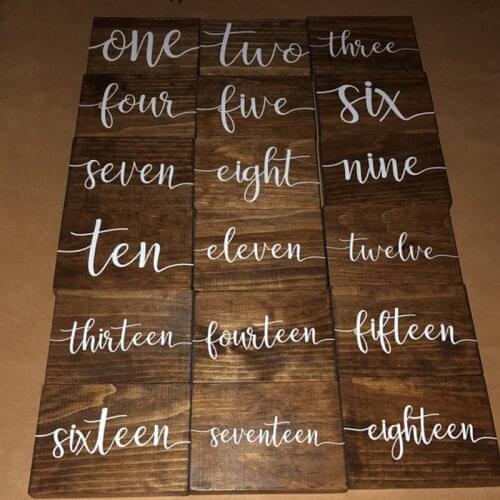 one two three
four five six
seven eight nine
ten eleven twelve
thirteen fourteen fifteen
sixteen seventeen eighteen